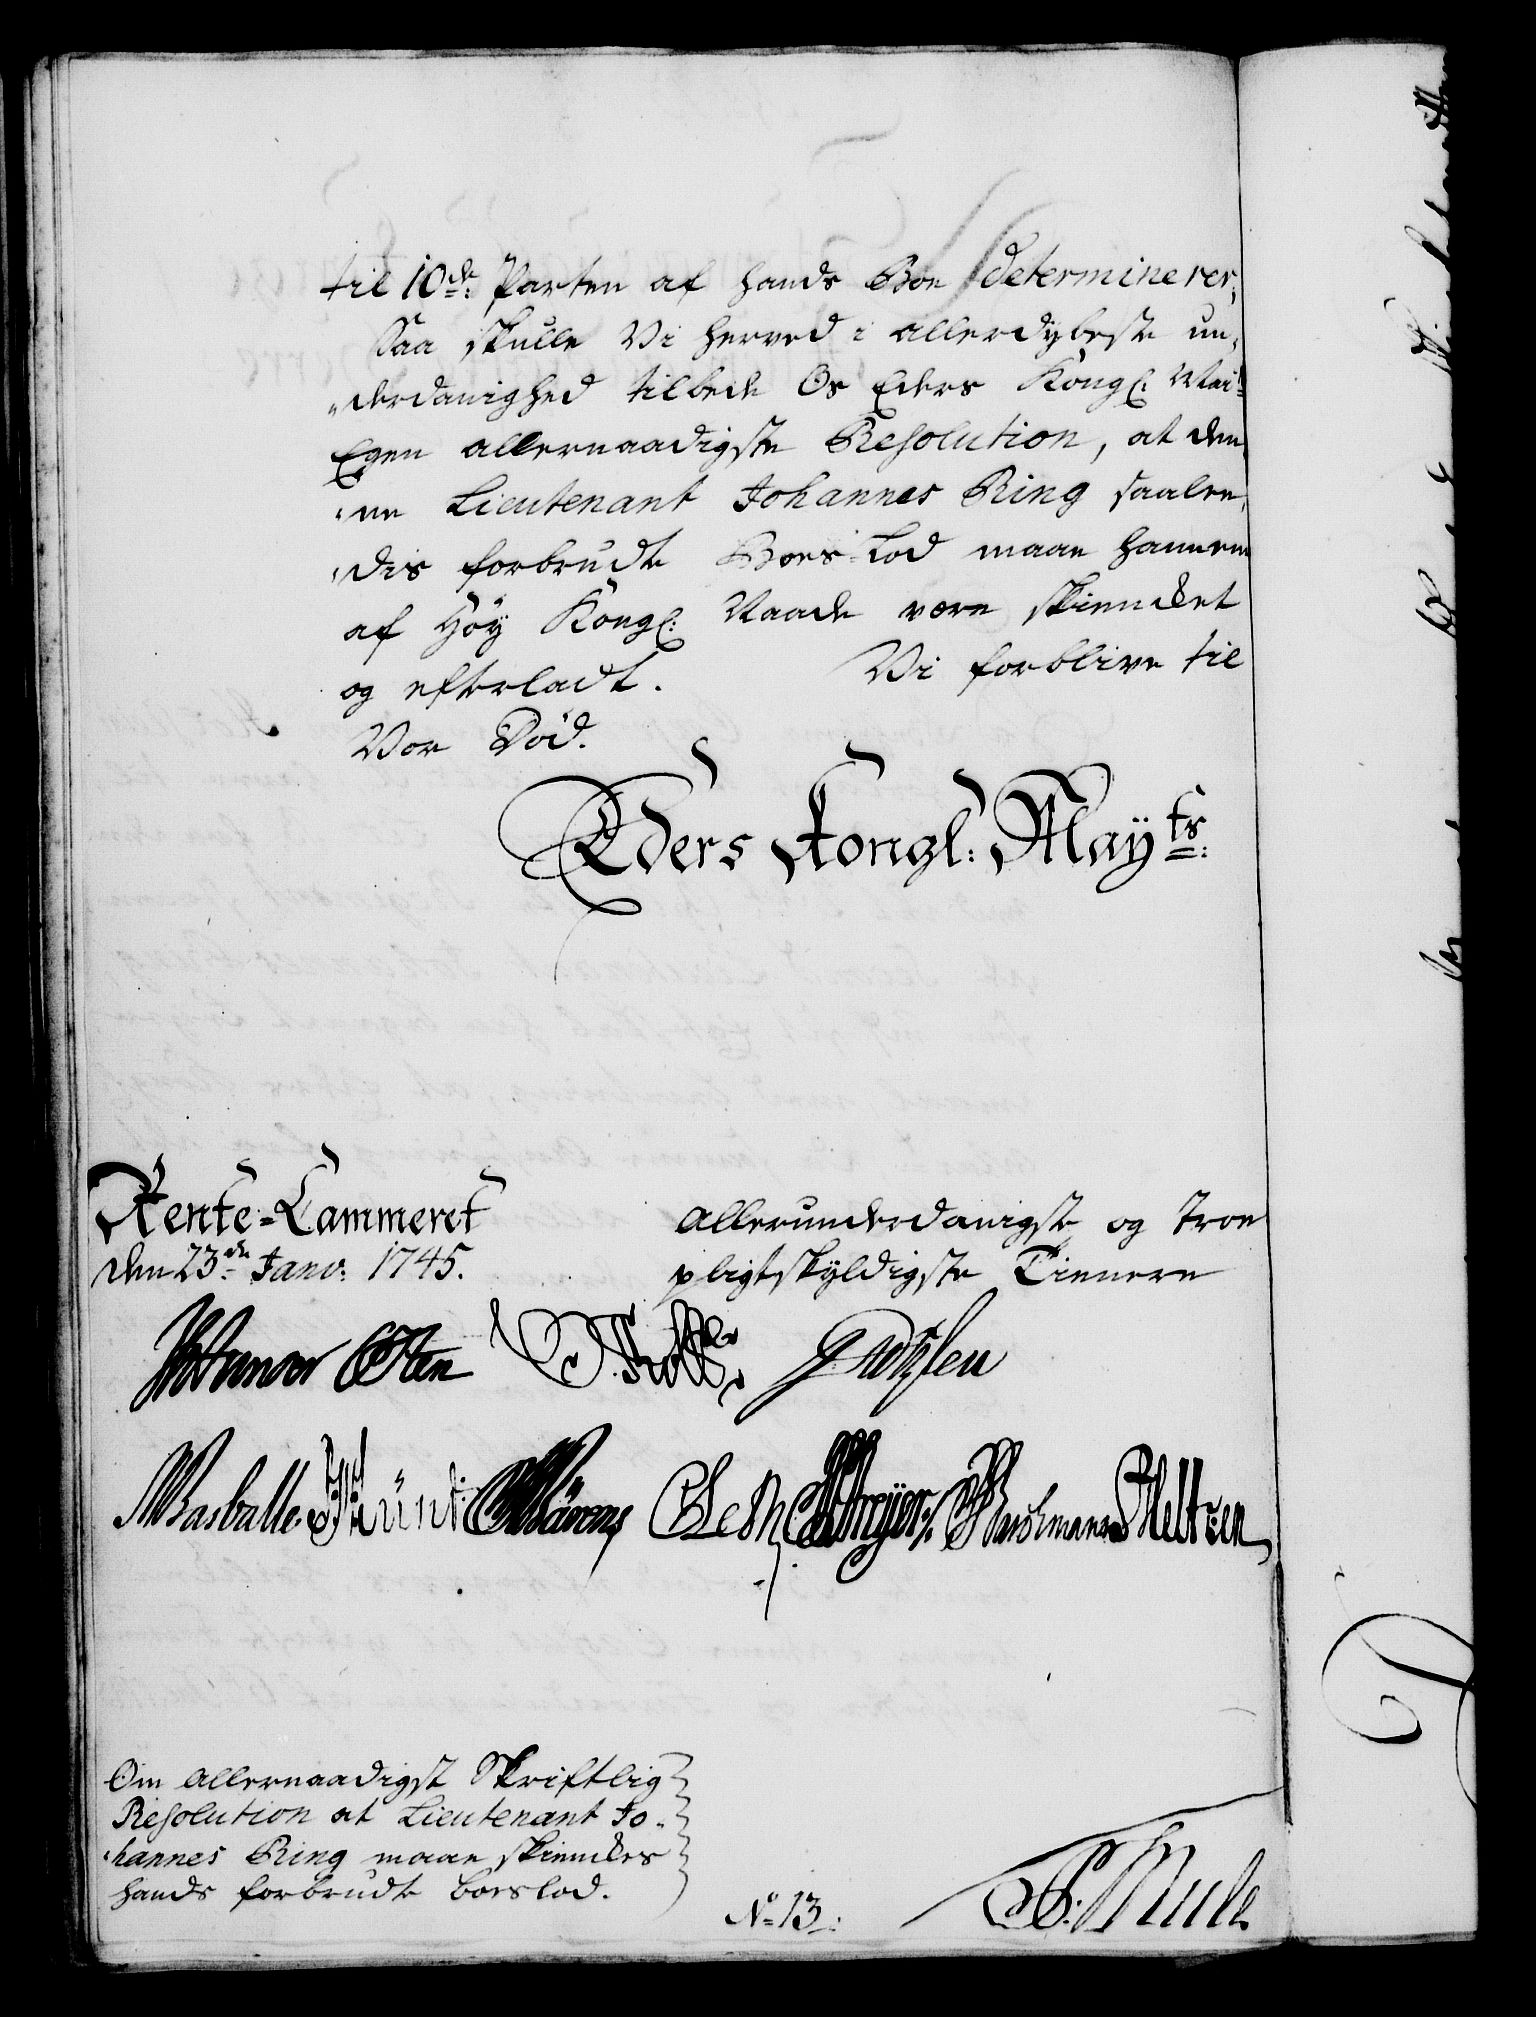 til 10de Parten af hands Boe determinerer,
Saa skulle Vi herved i allerdybeste un„
„derdanighed tilbede Os Eders Kongl: Maits
Egen allernaadigste Resolution, at den„
„ne Lieutenant Johannes Ring saalee„
„dis forbrudte Boes-Lod maae hannem
af Höy Kongl: Naade være skiencket
og efterladt. Vi forblive til
Vor Död.
Eders Kongl: Mayts:
Rente-Cammeret
den 23de Janv: 1745.
allerunderdanigste og troe
pligtskyldigste Tienere
Otten
Basballe Leth Meltzen
Om allernaadigst Skriftlig
Resolution at Lieutenant Jo„
„hannes Ring maae skienckes
hands forbrudte boeslod.
No 13:
Mule